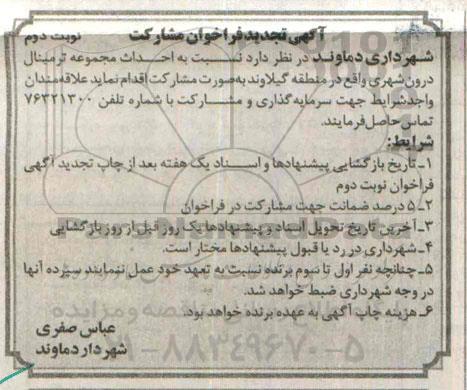 آگهی تجدید فراخوان مشارکت نوبت دوم
شهرداری دماوند در نظر دارد نسبت به احداث مجموعه ترمینال
درون شهری واقع در منطقه گیلاوند به‌صورت مشارکت اقدام نماید علاقه‌مندان
واجد شرایط جهت سرمایه گذاری و مشارکت با شماره تلفن ۷۶۳۲۱۳۰۰
تماس حاصل فرمایند.
شرایط:
۱ـ تاریخ بازگشایی پیشنهادها و اسناد یک هفته بعد از چاپ تجدید آگهی
فراخوان نوبت دوم
۲ـ ۵ درصد ضمانت جهت مشارکت در فراخوان
۳ـ آخرین تاریخ تحویل اسناد و پیشنهادها یک روز قبل از روز بازگشایی
۴ـ شهرداری در رد یا قبول پیشنهادها مختار است.
۵ـ چنانچه نفر اول تا سوم برنده نسبت به تعهد خود عمل ننمایند سپرده آنها
در وجه شهرداری ضبط خواهد شد.
۶ـ هزینه چاپ آگهی به عهده برنده خواهد بود.
عباس صفری
شهردار دماوند
۰۲۱-۸۸۳۴۹۶۷۰-۵